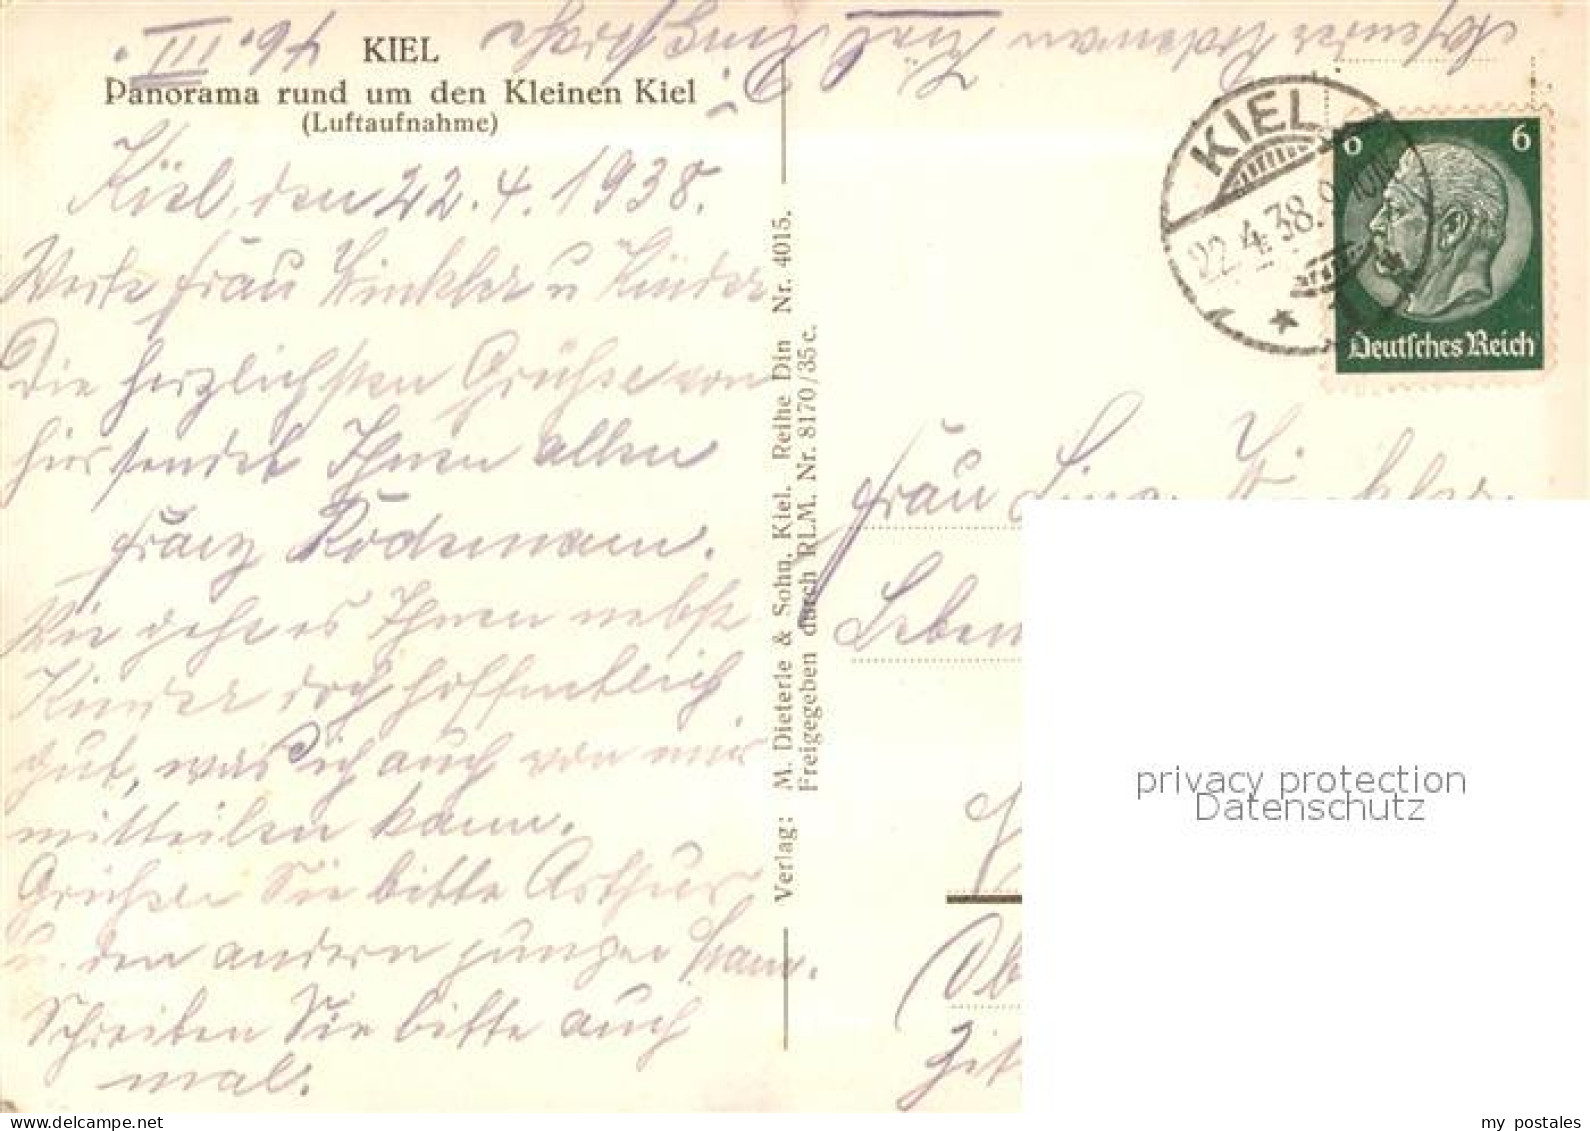 KIEL
Panorama rund um den Kleinen Kiel
(Luftaufnahme)
Kiel, den 22.4.1938.
Werte Frau Winkler u Kinder
Die herzlichsten Grüße von
hier sendet Ihnen allen
Franz Rodemann.
Wie geht es Ihnen nebst
Kinder doch hoffentlich
gut, was ich auch von mir
mitteilen kann.
Grüßen Sie bitte Arthur
u. den andern jungen Mann.
Schreiben Sie bitte auch
mal.
Verlag: M. Dieterle & Sohn, Kiel. Reihe Din Nr. 4015.
Freigegeben durch RLM. Nr. 8170/35 c.
Rodemann Kiel
46. III.
KIEL
22.4.38.9
6 6
Deutsches Reich
Frau Lina Winkler
Leben
Ob
Zit
privacy protection
Datenschutz
my postales